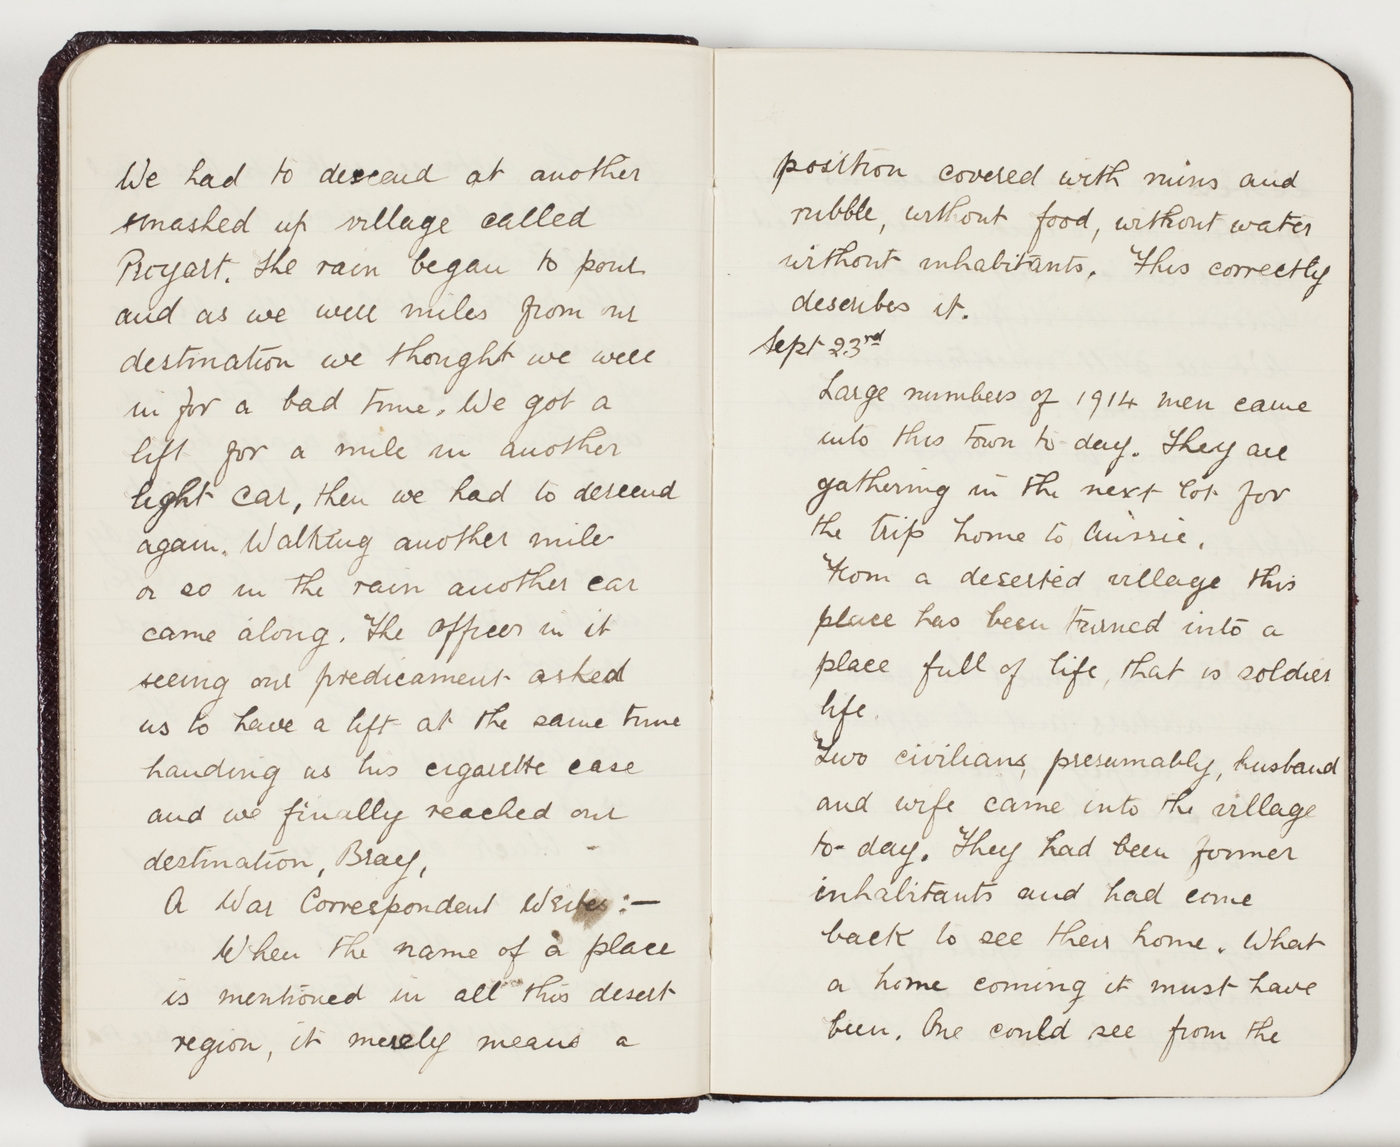 We had to descend at another
smashed up village called
Proyart. The rain began to pour
and as we were miles from our
destination we thought we were
in for a bad time. We got a
lift for a mile in another
light car, then we had to descend
again. Walking another mile
or so in the rain another car
came along. The officer in it
seeing our predicament asked
us to have a lift at the same time
handing us his cigarette case
and we finally reached our
destination, Bray,
A War Correspondent Writes :—
When the name of a place
is mentioned in all this desert
region, it merely means a
position covered with ruins and
rubble, without food, without water
without inhabitants. This correctly
describes it.
Sept 23rd
Large numbers of 1914 men came
into this town to-day. They are
gathering in the next lot for
the trip home to Aussie.
From a deserted village this
place has been turned into a
place full of life, that is soldier
life.
Two civilians, presumably, husband
and wife came into the village
to-day. They had been former
inhabitants and had come
back to see their home. What
a home coming it must have
been. One could see from the